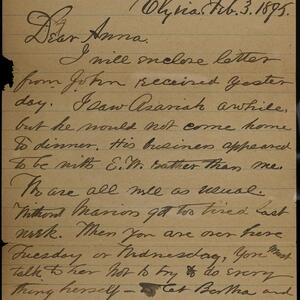 Elyria. Feb. 3. 1895.
Dear Anna.
I will enclose letter
from John received yester
day. I saw Azariah awhile,
but he would not come home
to dinner. His business appeared
to be with E.W. rather than me.
We are all well as usual.
Marion got too tired last
week. When you are over here
Tuesday or Wednesday, you must
talk to her not to try to do every
thing herself — Let Bertha and